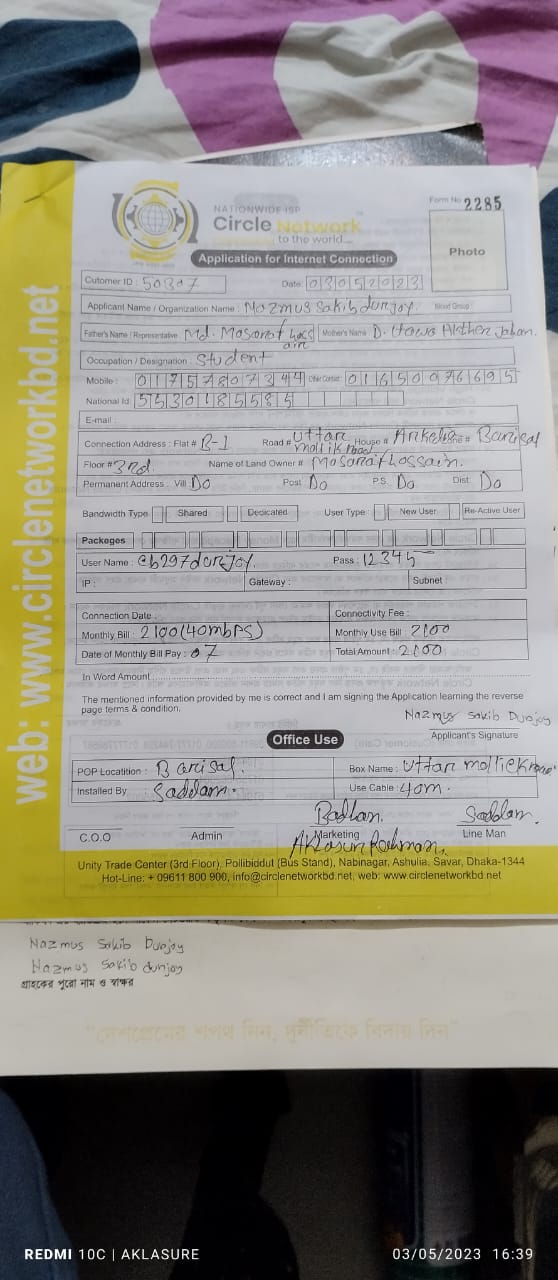 NATIONWIDE ISP
Circle Network
to the world...
Form No 2285
Photo
Application for Internet Connection
web: www.circlenetworkbd.net
Cutomer ID : 50307 Date 03052023
Applicant Name / Organization Name : Nozmus sakib durjoy. Blood Group :
Father's Name / Representative Md. Mosarof Hossain Mother's Name D. Hawa Akther Jahan.
Occupation / Designation : Student
Mobile : 01757807344 Other Contact : 01650097669
National Id
E-mail :
Connection Address : Flat # B-1 Road # Uttar mollik Road House # Barisal
Floor # 3rd. Name of Land Owner # Mosarof Hossain.
Permanent Address : Vill Do Post Do P.S. Do Dist. Do
Bandwidth Type Shared Dedicated User Type New User Re-Active User
Packages
User Name : cb297durjoy. Pass : 12345
IP : Gateway : Subnet
Connection Date : Connectivity Fee :
Monthly Bill : 2100 (40mbps) Monthly Use Bill 2100
Date of Monthly Bill Pay : 07 Total Amount : 2100
In Word Amount
The mentioned information provided by me is correct and I am signing the Application learning the reverse
page terms & condition.
Nazmus Sakib Durjoy
Applicant's Signature
Office Use
POP Locatition : Barisal. Box Name : Uttar mollick
Installed By Saddam. Use Cable : 40m.
Saddam.
C.O.O Admin Marketing Line Man
Unity Trade Center (3rd Floor), Pollibiddut (Bus Stand), Nabinagar, Ashulia, Savar, Dhaka-1344
Hot-Line: + 09611 800 900, info@circlenetworkbd.net, web: www.circlenetworkbd.net
Nazmus Sakib Durjoy
Nazmus Sakib durjoy
গ্রাহকের পুরো নাম ও স্বাক্ষর
"দেশপ্রেমের শপথ নিন, দুর্নীতিকে বিদায় দিন"
REDMI 10C | AKLASURE 03/05/2023 16:39